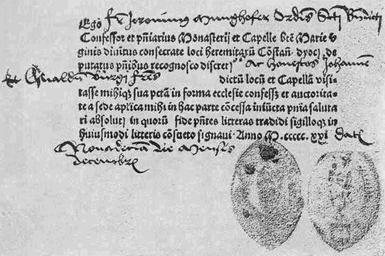 Ego fr Jeronimus Munghofer Ordis Scti Bndicti
Confessor et pniarius Monasterij et Capelle bte Marie v
ginis diuinitus consecrate loci heremitarū Cōstan̄ dyoc̄ de
putatus pn̄tibus recognosco discret Ac honestos Johannem
Et Oswaldū fr̄es dictā locū et Capellā visi
tasse mihiqꝫ sua pctā in forma ecclesie confess et auctorita
te a sede aplica mihi in hac parte cōcessa iniūcta pnīa saluta
ri absolui in quorū fide pn̄tes litteras tradidi sigilloqꝫ in
huiusmodi litteris cōsueto signaui Anno M. ccccc xxj dat
Nona die Mensis
decembris